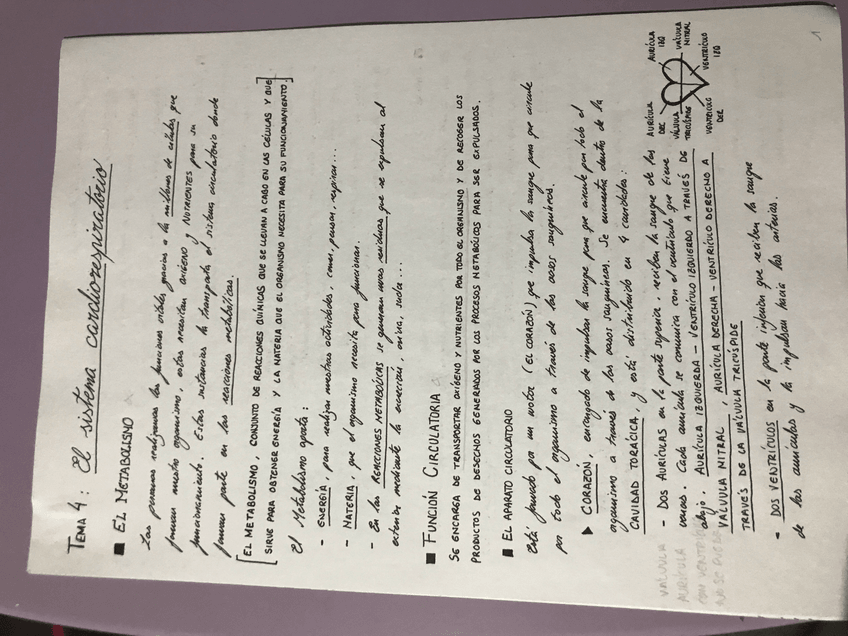 TEMA 4: El sistema cardiorespiratorio
■ EL METABOLISMO
Las personas realizamos las funciones vitales gracias a la millones de células que
forman nuestro organismo, estas necesitan OXÍGENO y NUTRIENTES para su
funcionamiento. Estas sustancias la transporta el sistema circulatorio donde
forman parte en las reacciones metabólicas.
[EL METABOLISMO, CONJUNTO DE REACCIONES QUÍMICAS QUE SE LLEVAN A CABO EN LAS CÉLULAS Y QUE
SIRVE PARA OBTENER ENERGÍA Y LA MATERIA QUE EL ORGANISMO NECESITA PARA SU FUNCIONAMIENTO.]
El Metabolismo aporta:
- ENERGÍA, para realizar nuestras actividades, comer, pensar, respirar...
- MATERIA, que el organismo necesita para funcionar.
- En las REACCIONES METABÓLICAS se generan unos residuos que se expulsan al
exterior mediante la excreción, orina, sudor...
■ FUNCIÓN CIRCULATORIA
SE ENCARGA DE TRANSPORTAR OXÍGENO Y NUTRIENTES POR TODO EL ORGANISMO Y DE RECOGER LOS
PRODUCTOS DE DESECHOS GENERADOS POR LOS PROCESOS METABÓLICOS PARA SER EXPULSADOS.
■ EL APARATO CIRCULATORIO
Está formado por un motor (EL CORAZÓN) que impulsa la sangre para que circule
por todo el organismo a través de los vasos sanguíneos.
▶ CORAZÓN, encargado de impulsar la sangre para que circule por todo el
organismo a través de los vasos sanguíneos. Se encuentra dentro de la
CAVIDAD TORÁCICA, y está distribuido en 4 cavidades:
- DOS AURÍCULAS en la parte superior, reciben la sangre de las
venas. Cada aurícula se comunica con el ventrículo que tiene
abajo. AURÍCULA IZQUIERDA - VENTRÍCULO IZQUIERDO A TRAVÉS DE
VÁLVULA MITRAL, AURÍCULA DERECHA - VENTRÍCULO DERECHO A
TRAVÉS DE LA VÁLVULA TRICÚSPIDE
- DOS VENTRÍCULOS en la parte inferior que reciben la sangre
de las aurículas y la impulsan hacia las arterias.
AURÍCULA DER
AURÍCULA IZQ
VÁLVULA TRICÚSPIDE
VÁLVULA MITRAL
VENTRÍCULO DER
VENTRÍCULO IZQ
VÁLVULA
AURÍCULA
1